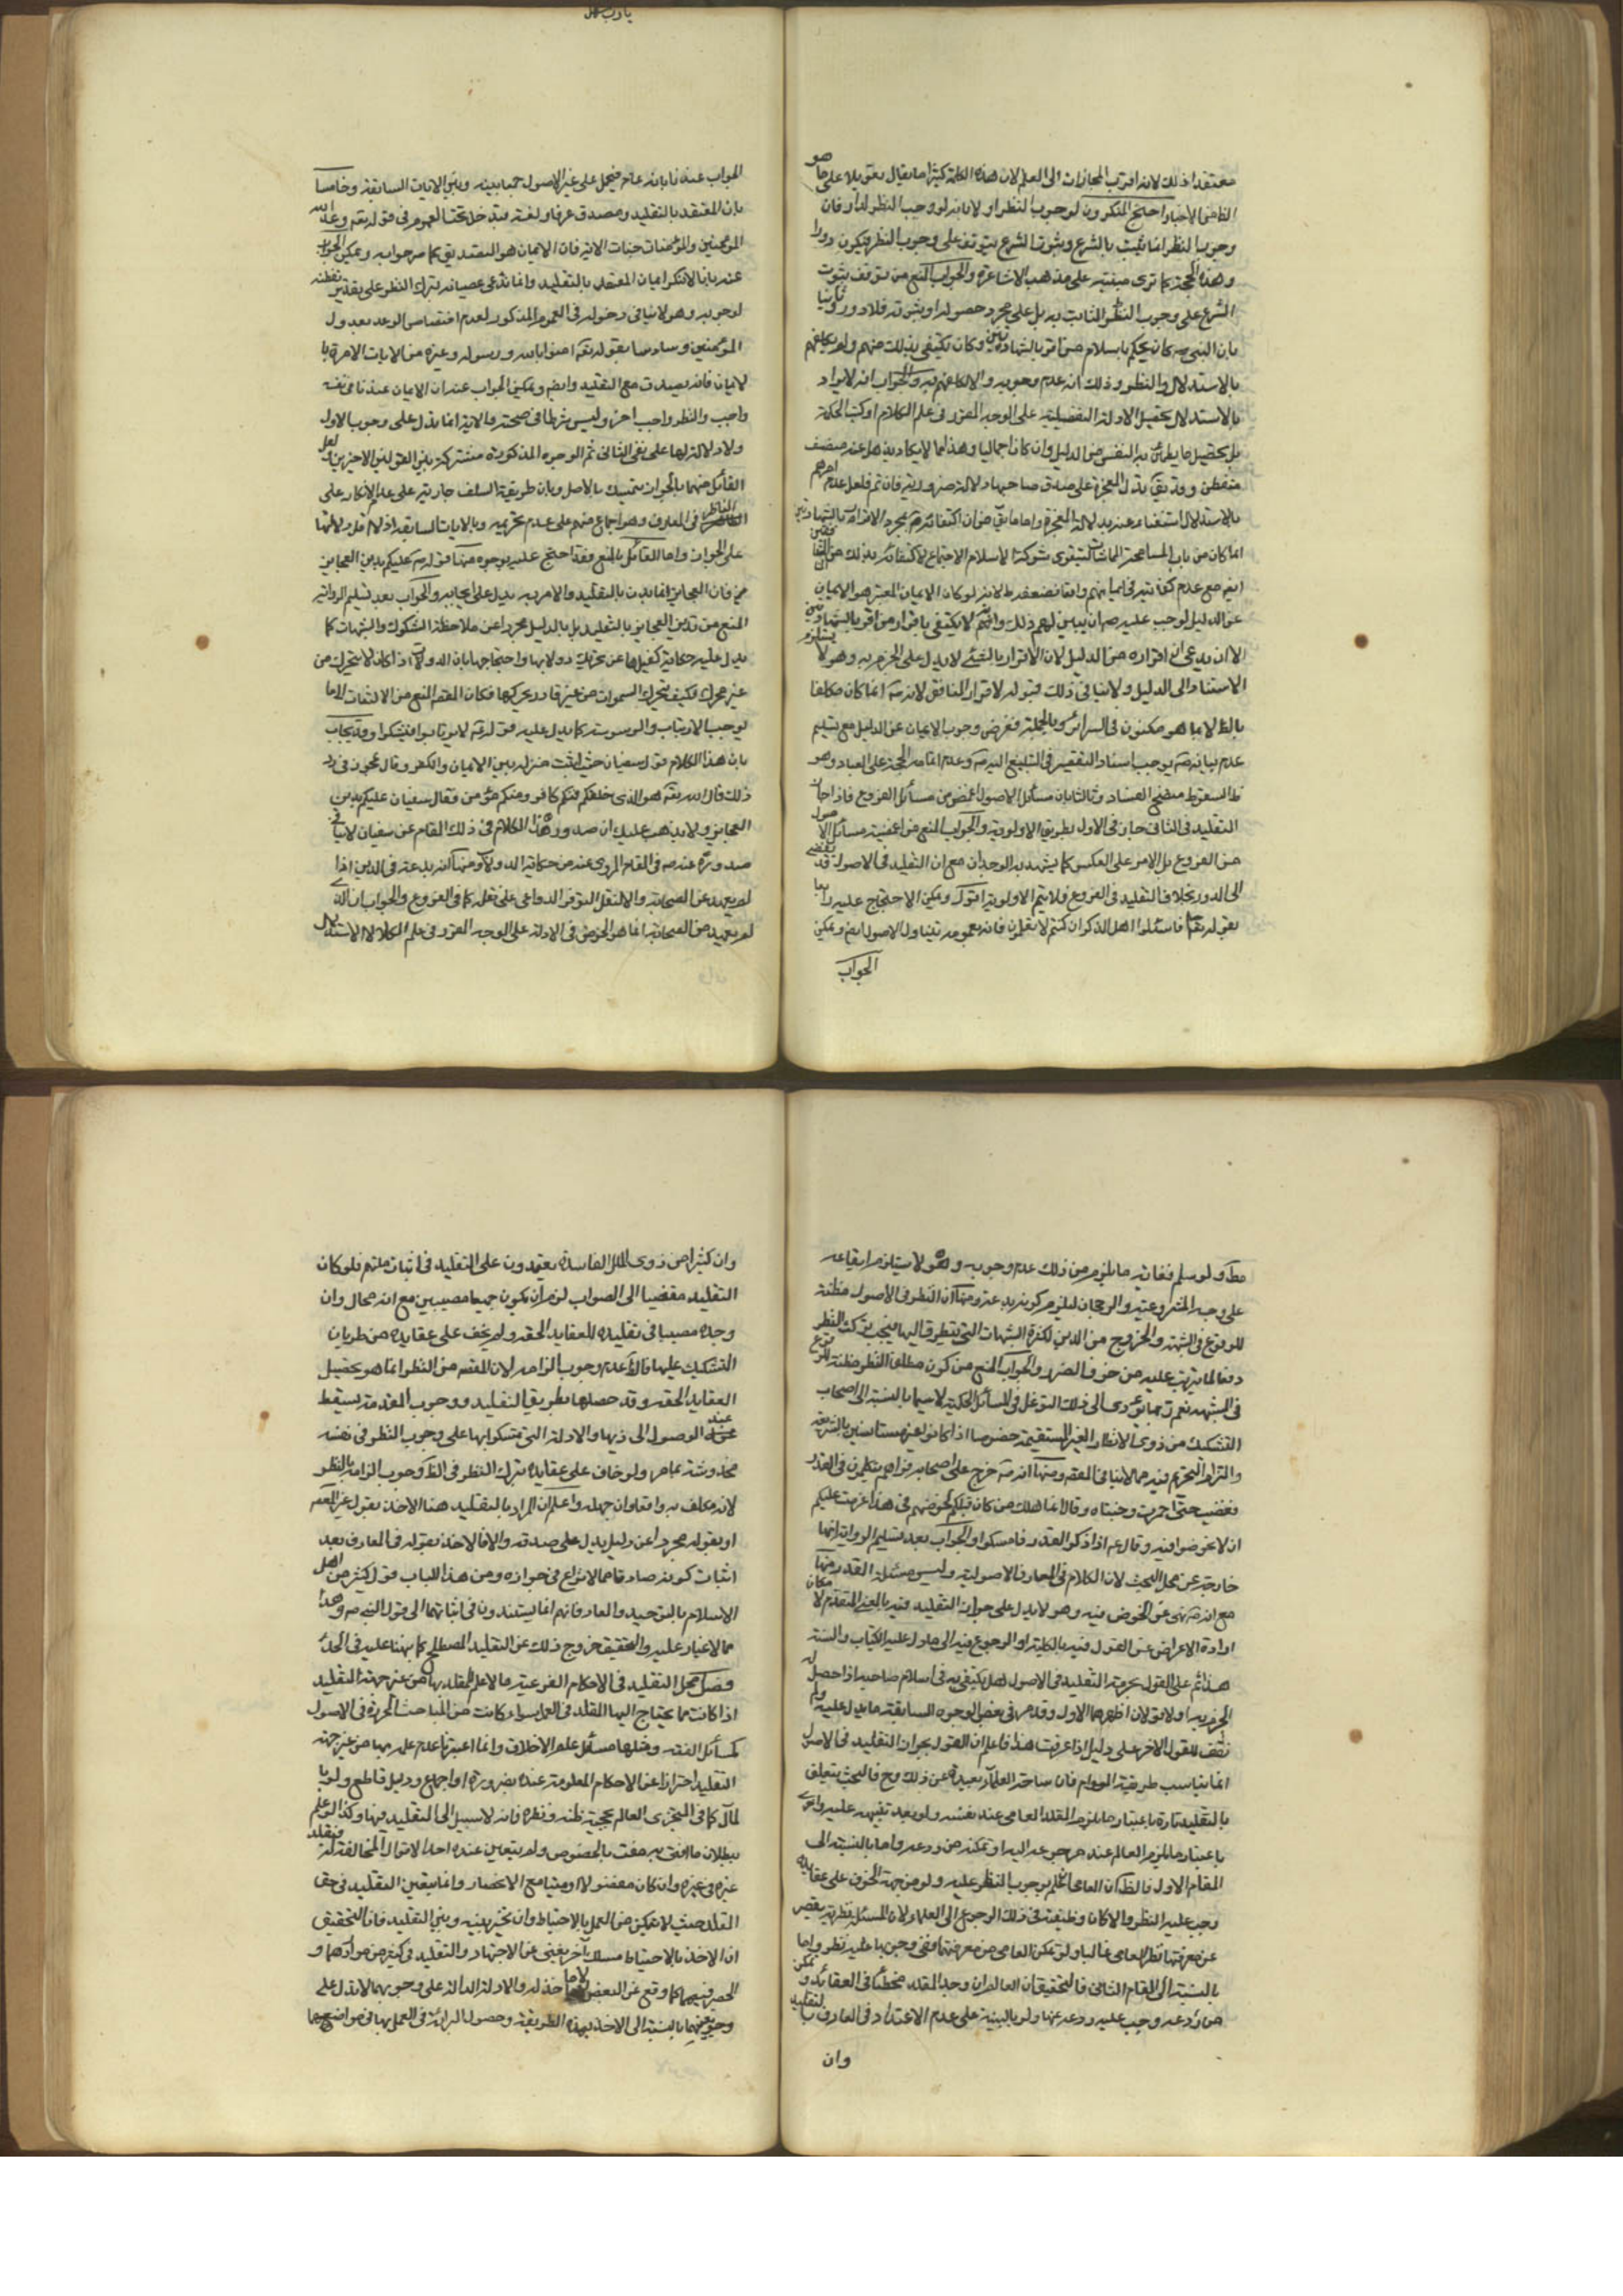 يا رب سهل
معتقدا ذلك لانه اقرب المجازات الى العلم لان هذه الكلمة كثيرا ما يقال تعويلا على ما هو
الظاهر الاخبار احتج المنكرون لوجوب النظر اولا بانه لو وجب النظر لدار فان
وجوب النظر انما يثبت بالشرع وثبوت الشرع يتوقف على وجوب النظر فيكون دورا
وهذه الحجة كما ترى مبنية على مذهب الاشاعرة والجواب المنع من توقف ثبوت
الشرع على وجوب النظر الثابت به بل على مجرد حصوله او ثبوته فلا دور وثانيا
بان النبي صه كان يحكم باسلام من اقر بالشهادتين وكان يكتفي بذلك منهم ولم يكلفهم
بالاستدلال والنظر وذلك انه عدم وجوبه والا لكلفهم به والجواب انه لا يراد
بالاستدلال تحصيل الادلة التفصيلية على الوجه المقرر في علم الكلام او كتب الحكمة
بل تحصيل ما يطمئن به النفس من الدليل وان كان اجماليا وهذا مما لا يكاد يذهل عنه منصف
متفطن وقد يق بدل المعجزة على صدق صاحبها دلالة ضرورية فان تم فلعل عدم امرهم
بالاستدلال استغناء عنه بدلالة المعجزة واما ما يق من ان اكتفائه صه بمجرد الاقرار بالشهادتين
انما كان من باب المسامحة
ايض مع عدم كفايته في ايمانهم واقعا فضعفه ظ لانه لو كان الايمان المعتبر هو الايمان
عن الدليل لوجب عليه صه ان يبين لهم ذلك وانه لا يكتفي باقرار من اقر بالشهادتين
الا ان يدعى ان اقراره من الدليل لان الاقرار بالشئ لا يدل على الجزم به وهو لا يستلزم
الاستناد الى الدليل ولا ينافي ذلك قبوله لاقرار المنافق لانه صه انما كان مكلفا
بالظ لا بما هو مكنون في السرائر وبالجملة ففرض وجوب الايمان عن الدليل مع تسليم
عدم بيانه صه يوجب اسناد التقصير في التبليغ اليه صه وعدم اتمام الحجة على العباد وهو
ظ السقوط متضح الفساد وثالثا بان مسائل الاصول اغمض من مسائل الفروع فاذا جاز
التقليد في الثاني جاز في الاول بطريق الاولوية والجواب المنع من اغمضية مسائل الاصول
من الفروع بل الامر على العكس كما يشهد به الوجدان مع ان التقليد في الاصول قد يفضي
الى الدور بخلاف التقليد في الفروع فلا يتم الاولوية اقول ويمكن الاحتجاج عليه رابعا
بقوله تعا فاسئلوا اهل الذكر ان كنتم لا تعلمون فانه بعمومه يتناول الاصول ايض ويمكن
الجواب
الجواب عنه بانه عام فيحمل على غير الاصول جمعا بينه وبين الايات السابقة وخامسا
بان المعتقد بالتقليد ومصدق عرفا ولغة فيدخل تحت العموم في قوله تعه وعد الله
المؤمنين والمؤمنات جنات الاية فان الايمان هو التصديق كما مر جوابه ويمكن الجواب
عنه بانا لا ننكر ايمان المعتقد بالتقليد وانما ندعى عصيانه بترك النظر على تقدير تفطنه
لوجوبه وهو لا ينافي دخوله في العموم المذكور لعدم اختصاص الوعد بعدول
المؤمنين وسادسا بقوله تعه امنوا بالله ورسوله وغيره من الايات الامرة با
لايمان فانه يصدق مع التقليد وايض ويمكن الجواب عنه ان الايمان عندنا في نفسه
واجب والنظر واجب اخر وليس شرطا في صحته فالاية انما تدل على وجوب الاول
ولا دلالة لها على نفي الثاني ثم الوجوه المذكورة مشتركة بين القولين الاخيرين ولعل
القائل منهما بالجواز يتمسك بالاصل وبان طريقة السلف جارية على عدم الانكار على
الناظر في المعارف وهو اجماع منهم على عدم تحريمه وبالايات السابقة اذ لا اقل من دلالتها
على الجواز واما القائل بالمنع فقد احتج عليه بوجوه منها قوله صه عليكم بدين العجايز
فان العجايز انما يدن بالتقليد والامر به يدل على ايجابه والجواب بعد تسليم الرواية
المنع من تدين العجايز بالتقليد بل بالدليل مجردا عن ملاحظة الشكوك والشبهات كما
يدل عليه حكاية كفيلها عن تحريك دولابها واحتجاجها بان الدولاب اذا كان لا يتحرك من
غير محرك فكيف يتحرك السموات من غير قادر يحركها فكان المقصد المنع من الالتفات الى ما
يوجب الارتياب والوسوسة كما يدل عليه قوله تعه لا يرتابوا فيتشكوا وقد يجاب
بان هذا الكلام قول سفيان حيث اثبت منزلة بين الايمان والكفر وقال عجوز في رد
ذلك قال الله تعه هو الذي خلقكم فمنكم كافر ومنكم مؤمن فقال سفيان عليكم بدين
العجايز ولا يذهب عليك ان صدور هذا الكلام في ذلك المقام عن سفيان لا ينافي
صدوره عنه صه في المقام المروي عنه من حكاية الدولاب ومنها انه بدعة في الدين اذا
لم يعهد عن الصحابة والا لنقل لتوفر الدواعي على نقله كما في الفروع والجواب ان الذي
لم يعهد من الصحابة انما هو الخوض في الادلة على الوجه المقرر في علم الكلام لا الاستدلال
مط ولو سلم فغاية ما يلزم من ذلك عدم وجوبه وهو لا يستلزم ايقاعه
على وجه المشروعية والرجحان ليلزم كونه بدعة ومنها ان النظر في الاصول مظنة
للوقوع في الشبهة والخروج من الدين لكثرة الشبهات التي يتطرق اليها فيجب ترك النظر
دفعا لما يترتب عليه من خوف الضرر والجواب المنع من كون مطلق النظر مظنة للوقوع
في الشبهة نعم ربما يؤدي الى ذلك التوغل في المسائل الحكمية لا سيما بالنسبة الى اصحاب
التشكيك من ذوي الانظار الغير المستقيمة خصوصا اذا كانوا غير مستانسين بالشريعة
والتزام التحريم فيه مما لا ينافي المقصد ومنها انه صه خرج على اصحابه فراهم يتكلمون في القدر
فغضب حتى احمرت وجنتاه وقال انما هلك من كان قبلكم لخوضهم في هذا عزمت عليكم
ان لا تخوضوا فيه وقال عم اذا ذكر القدر فامسكوا والجواب بعد تسليم الرواية انها
خارجة عن محل البحث لان الكلام في المعارف الاصولية وليس مسئلة القدر منها
مع انه صه نهى عن الخوض فيه وهو لا يدل على جواز التقليد فيه بالمعنى المتقدم لامكان
ارادة الاعراض عن القول فيه بالكلية او الرجوع فيه الى ما دل عليه الكتاب والسنة
هذا ثم على القول بحرمة التقليد في الاصول هل يكتفى به في اسلام صاحبه اذا حصل له
الجزم به او لا قولان اظهرهما الاول وقد مر في بعض الوجوه السابقة ما يدل عليه ولم
نقف للقول الاخر على دليل اذا عرفت هذا فاعلم ان القول بجواز التقليد في الاصول
انما يناسب طريقة العوام فان ساحة العلماء بعيدة عن ذلك وح فالبحث يتعلق
بالتقليد تارة باعتبار ما يلزم المقلد العامي عند نفسه ولو بعد تنبيهه عليه واخرى
باعتبار ما يلزم العالم عند رجوعه اليه او تمكنه من ردعه واما بالنسبة الى
المقام الاول فالظ ان العامي ان علم بوجوب النظر عليه ولو من جهة الخوف على عقايده
وجب عليه النظر والا كان وظيفته في ذلك الرجوع الى العلماء ولان المسئلة نظرية يقصر
عن معرفتها نظر العامي غالبا ولو تمكن العامي من معرفتها ففي وجوبها عليه نظر واما
بالنسبة الى المقام الثاني فالتحقيق ان العالم ان وجد المقلد مخطئا في العقائد ويمكن
من ردعه وجب عليه ردعه عنها ولو بالبينة على عدم الاعتداد في المعارف بالتقليد
وان
وان كثيرا من ذوي الملل الفاسدة يعتمدون على التقليد في اثبات ملتهم فلو كان
التقليد مفضيا الى الصواب لزم ان يكون جميعا مصيبين مع انه محال وان
وجده مصيبا في تقليده للعقايد الحقه ولم يخف على عقايده من طريان
التشكيك عليها فالظ عدم وجوب الزامه لان المقصد من النظر انما هو تحصيل
العقايد الحقه وقد حصلها بطريق التقليد ووجوب المقدمة يسقط
عند الوصول الى ذيها والادلة التي تمسكوا بها على وجوب النظر في نفسه
مخدوشة بما مر ولو خاف على عقايده بترك النظر في الظ وجوب الزامه بالنظر
لانه مكلف به واقعا وان جهله واعلم ان المراد بالتقليد هنا الاخذ بقول غير المعصه
او بقوله مجردا عن دليل يدل على صدقه والا فالاخذ بقوله في المعارف بعد
اثبات كونه صادقا مما لا نزاع في جوازه ومن هذا الباب قول كثير من اهل
الاسلام بالتوحيد والمعاد فانهم انما يستندون في اثباتهما الى قول النبي صه وهذا
مما لا غبار عليه والتحقيق خروج ذلك عن التقليد المصطلح كما بهنا عليه في الحد
فصل محل التقليد في الاحكام الفرعية ما لا علم للمقلد بها من غير جهة التقليد
اذا كانت مما يحتاج اليها المقلد في العمل سواء كانت من المباحث المحررة في الاصول
كمسائل الفقه ومثلها مسائل علم الاخلاق وانما اعتبرنا عدم علمه بها من غير جهة
التقليد احترازا عن الاحكام المعلومة عنده بضرورة او اجماع ودليل قاطع ولو با
لمآل كما في المتجزى العالم بحجية ظنه ونظره فانه لا سبيل الى التقليد فيها وكذا لو علم
ببطلان ما افتى به مفت بالخصوص ولم يتعين عنده احد الاقوال المخالفة له فيقلد
غيره في غيره وان كان مفضولا او ميتا مع الانحصار وانما يتعين التقليد في حق
المقلد حيث لا يتمكن من العمل بالاحتياط وان تخير بينه وبين التقليد فان التحقيق
ان الاخذ بالاحتياط مسلك آخر يغنى عن الاجتهاد والتقليد في كثير من مواردهما و
الحصر فيهما كما وقع عن البعض لا ماخذ له والادلة الدالة على وجوبهما لا تدل على
وجوبهما بالنسبة الى الاخذ بهذه الطريقة وحصول البرائة في العمل بها في مواضعها